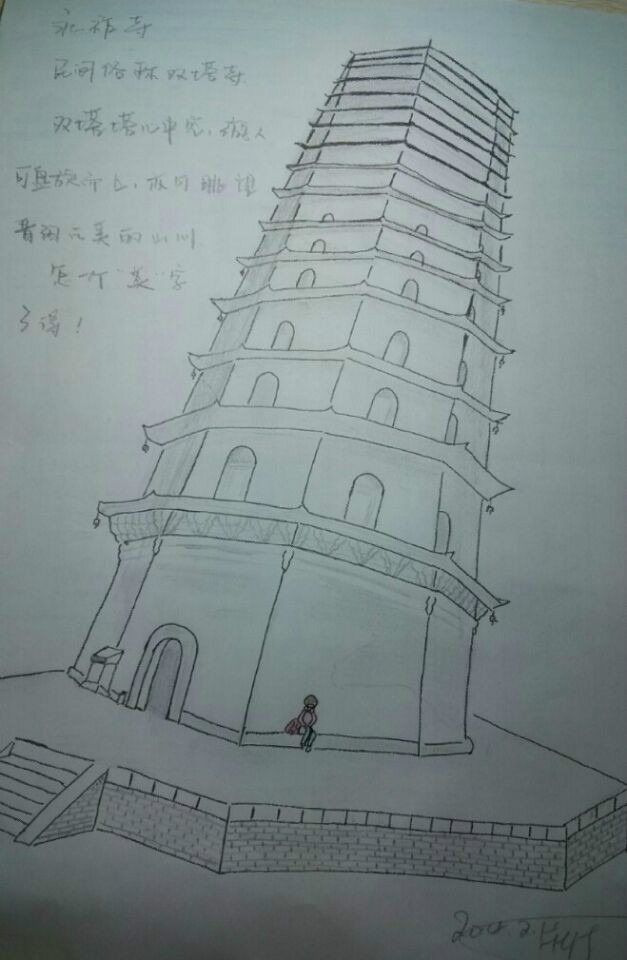 永祚寺
民间俗称双塔寺
双塔塔心中空，游人
可盘旋而上，亦可眺望
晋阳之美的山川
怎一个"美"字
了得！